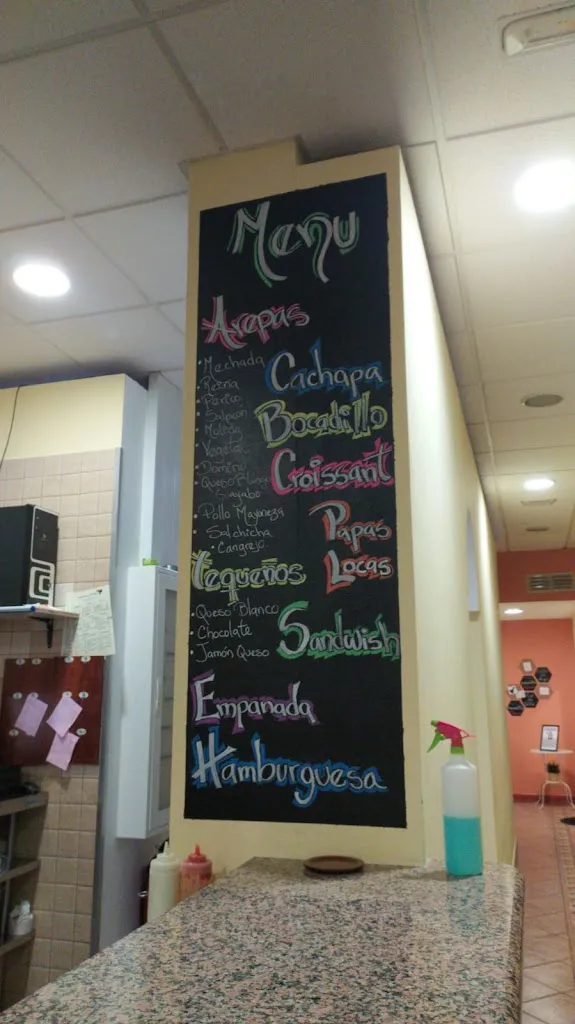 Menu
Arepas
• Mechada
• Reina
• Perico
• Salmon
• Molida
• Vegetal
• Domino
• Queso Blanco
• Pollo Mayoneza
• Salchicha
• Cangrejo
Tequeños
• Queso Blanco
• Chocolate
• Jamón Queso
Empanada
Hamburguesa
Cachapa
Bocadillo
Croissant
Papas
Locas
Sandwish